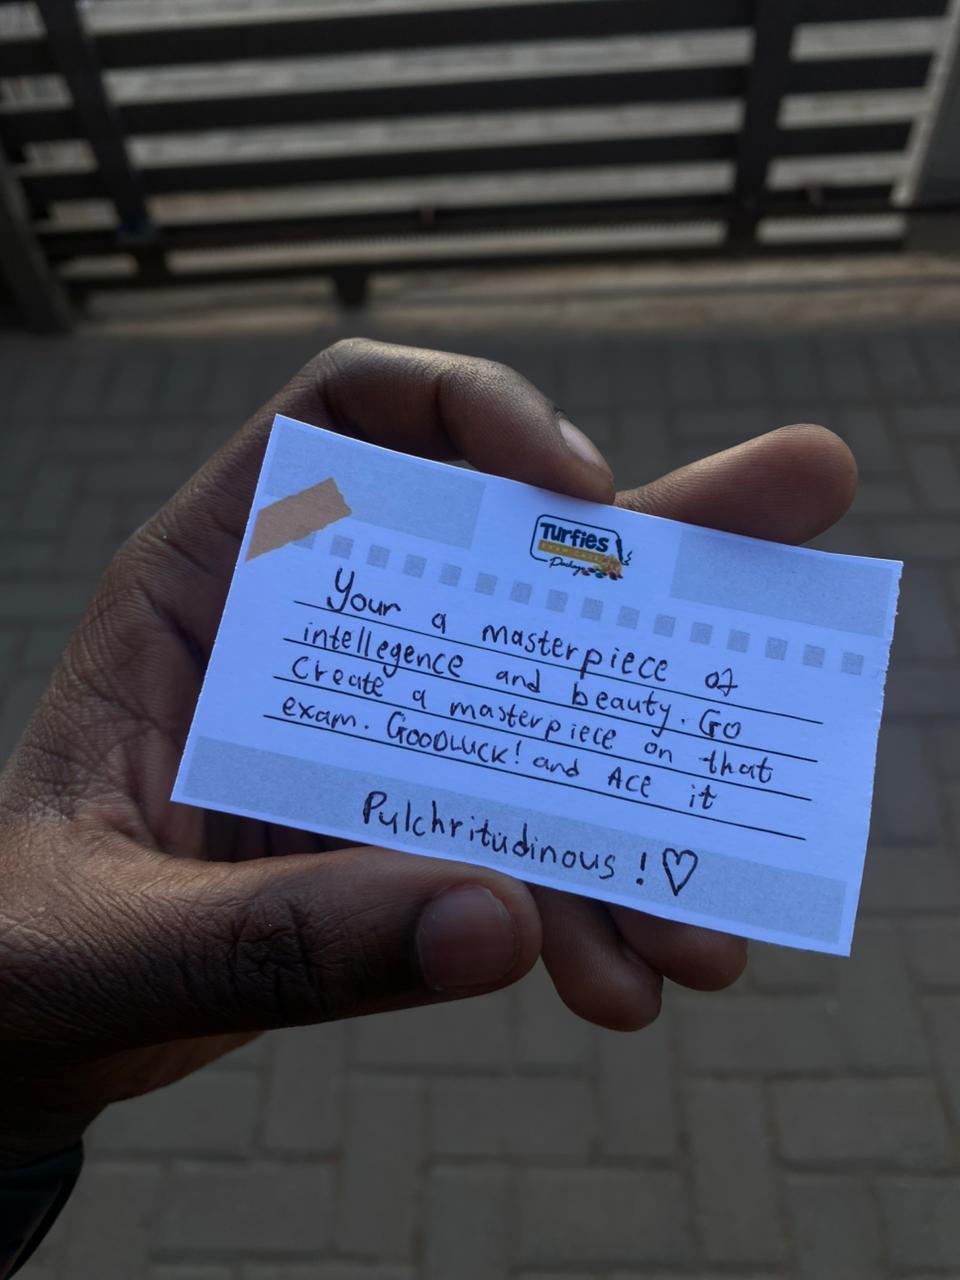 Turfies
Package
Your a masterpiece of
intellegence and beauty. Go
Create a masterpiece on that
exam. GOODLUCK! and Ace it
Pulchritudinous ! ♡